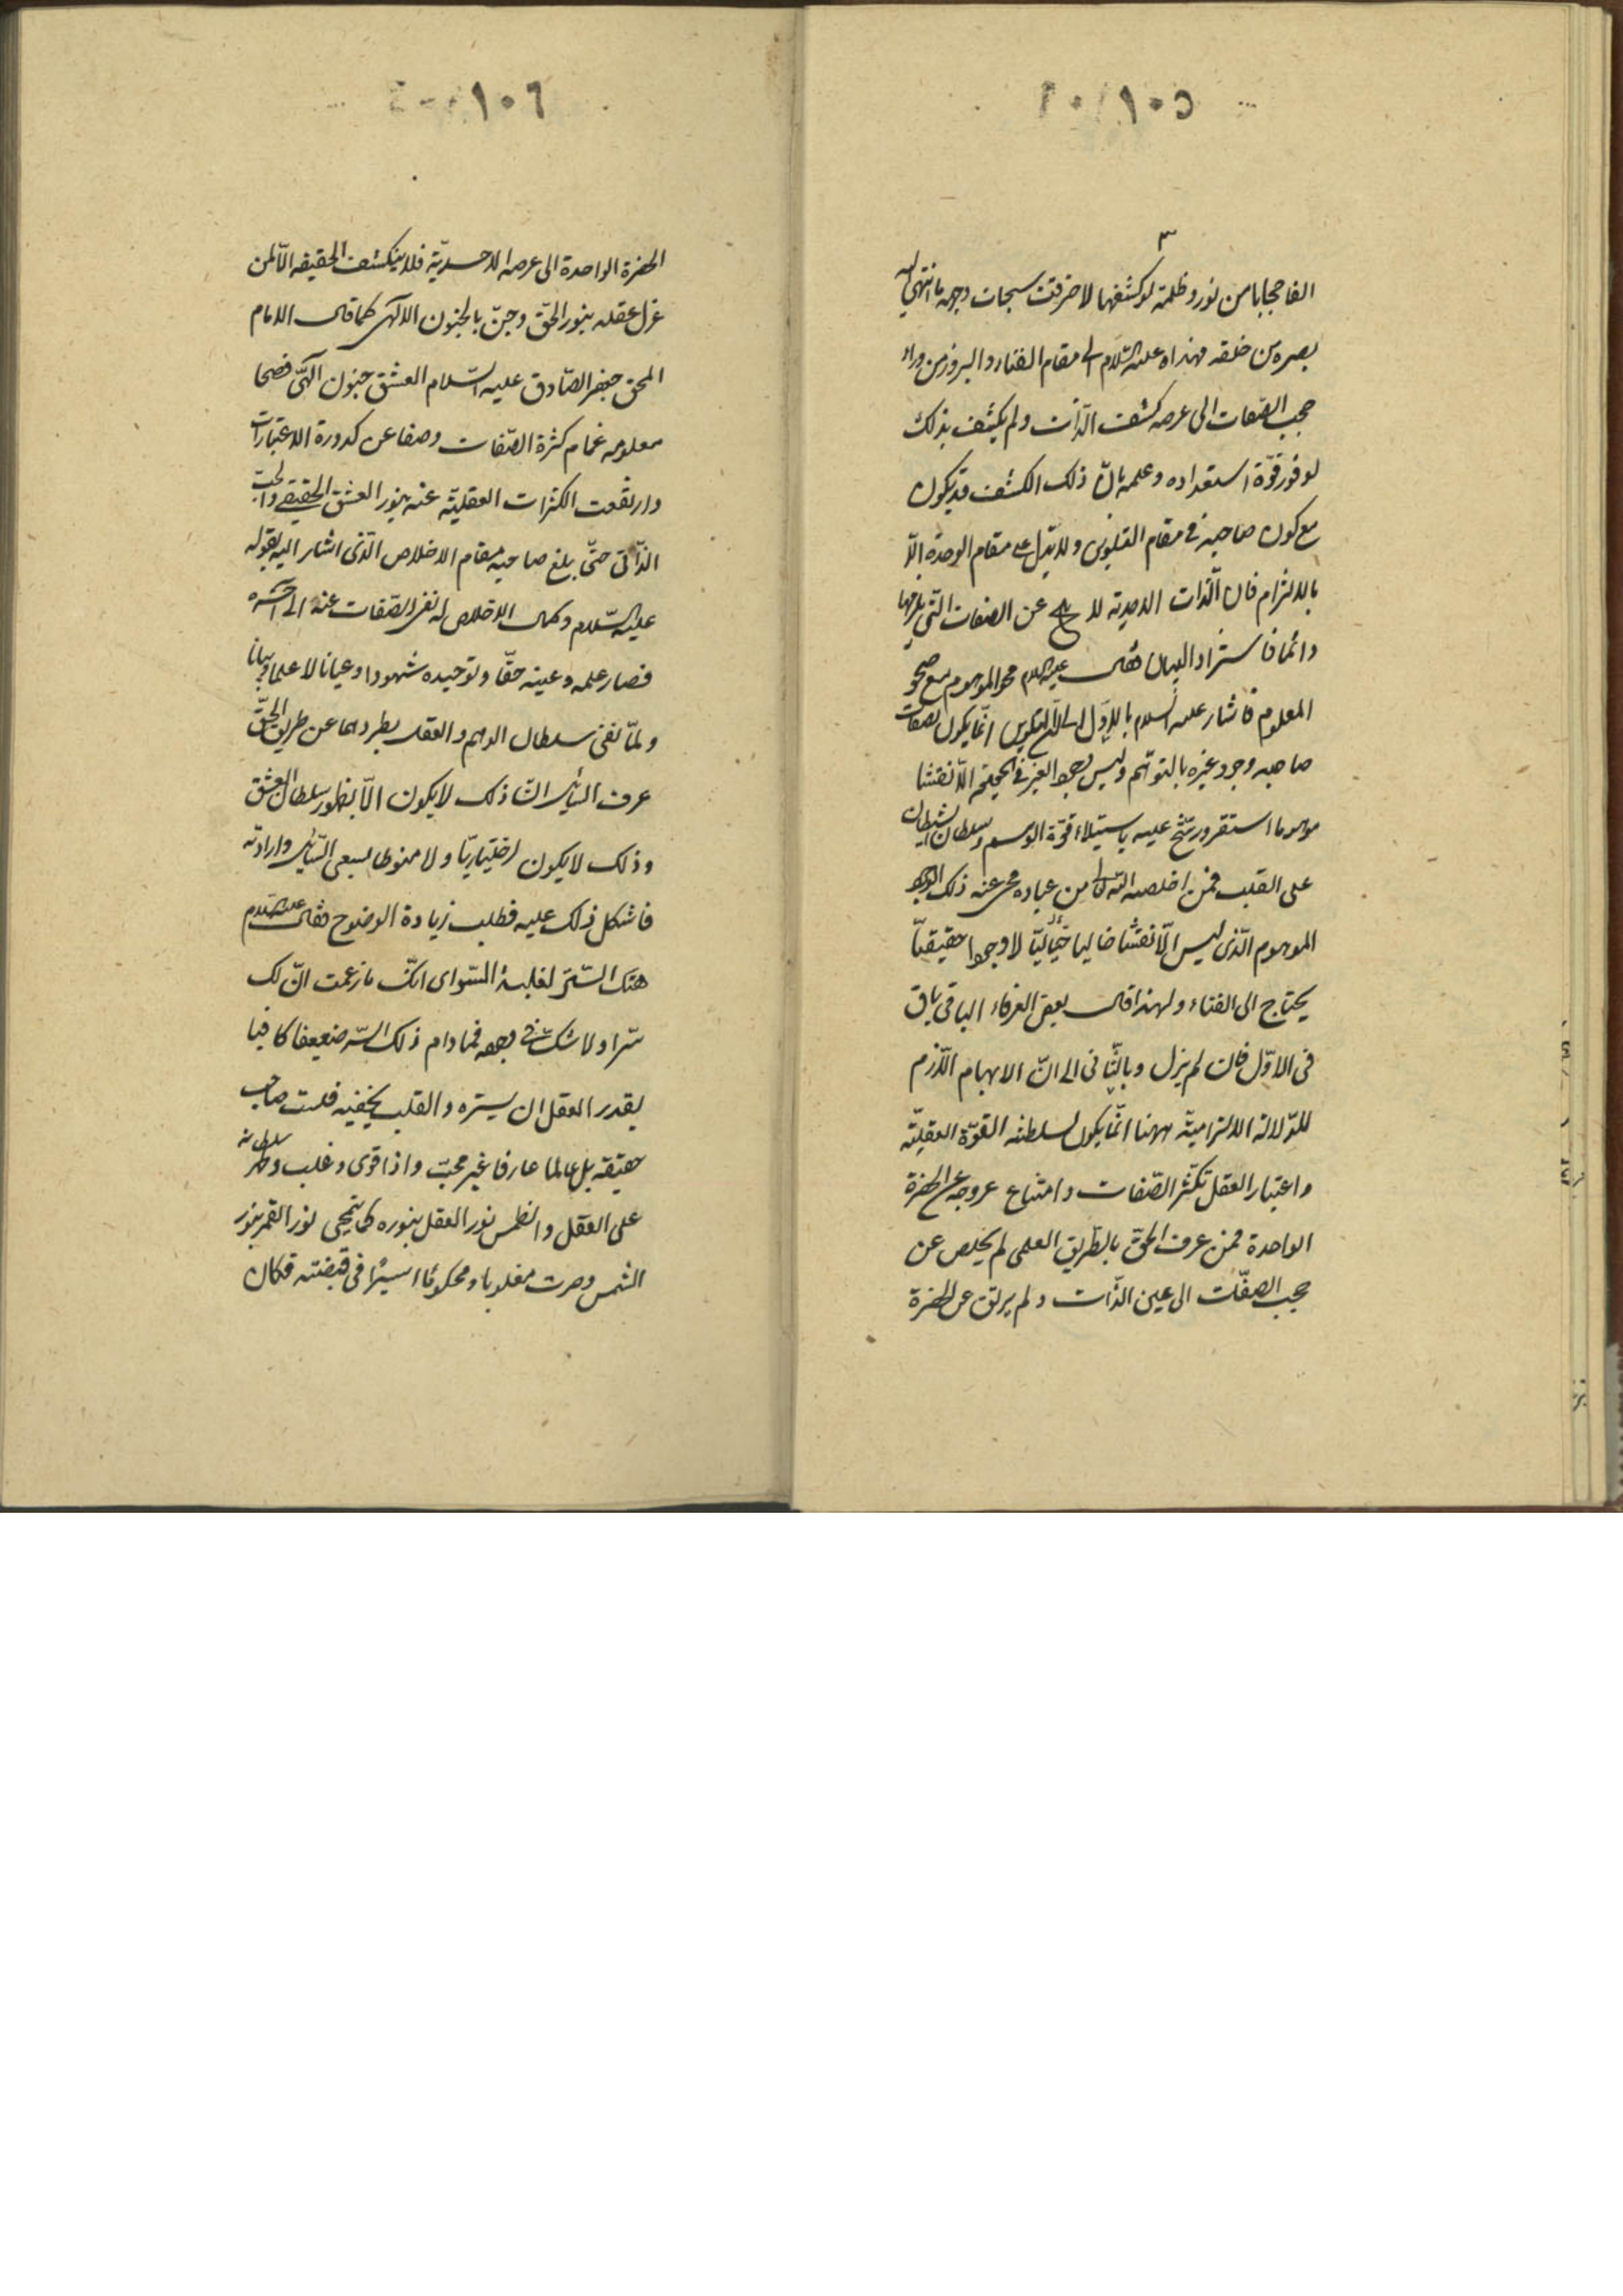 ١٠٥
الفا حجابا من نور و ظلمة لو كشفها لاحرقت سبحات وجهه ما انتهى اليه
بصره من خلقه فهداه عليه السّلام الى مقام الفناء و البروز من وراء
حجب الصّفات الى عرصه كشف الذّات و لم يكتف بذلك
لوفور قوّة استعداده و علمه بانّ ذلك الكشف قد يكون
مع كون صاحبه فى مقام التلوين و لا يدل على مقام الوحدة الّا
بالالتزام فان الذّات الاحديته لا عن الصفات التى يلزمها
دائما فاستزاد البيان فقال عليه السلام محو الموهوم مع صحو
المعلوم فاشار عليه السلام بالاول الى انّ التلوين انّما يكون لصفات
صاحبه وجود غيره بالتوهّم و ليس وجود الغير فى الحقيقه الّا نقشا
موهوما استقر و رسّخ عليه باستيلاء قوّة الوهم و سلطان الشيطان
على القلب فمن اخلصه الله تعالى من عباده محى عنه ذلك الوجود
الموهوم الّذى ليس الّا نقشا خاليا خياليّا لا وجودا حقيقيّا
يحتاج الى الفناء و لهذا قال بعض العرفاء الباقى باق
فى الاوّل فان لم يزل و بالثّانى الى انّ الابهام اللّازم
للدّلالة الالتزاميّة ههنا انّما يكون لسلطنه القوّة العقليّة
و اعتبار العقل تكثّر الصّفات و امتناع عروجه عن الحضرة
الواحدة فمن عرف الحقّ بالطّريق العلمى لم يخلص عن
حجب الصفّات الى عين الذّات و لم يرتق عن الحضرة
١٠٦
الحضرة الواحدة الى عرصه الاحديّة فلا ينكشف الحقيقه الّا لمن
عزل عقله بنور الحقّ و جنّ بالجنون الالهى كما قال الامام
المحق جعفر الصّادق عليه السّلام العشق جنون الهىّ فصحا
معلومه غمام كثرة الصّفات و صفا عن كدورة الاعتبارات
و ارتفعت الكثرات العقليّة عنه بنور العشق الحقيقى و الحبّ
الذّاتى حتّى بلغ صاحبه مقام الاخلاص الّذى اشار اليه بقوله
عليه السّلام و كمال الاخلاص له نفى الصّفات عنه الى آخره
فصار علمه و عينه حقّا و توحيده شهودا و عيانا لا علما و بيانا
و لمّا نفى سلطان الوهم و العقل بطردهما عن طريق الحقّ
عرف السّائل انّ ذلك لا يكون الّا بظهور سلطان العشق
و ذلك لا يكون اختياريّا و لا منوطا بسعى السّائل و ارادته
فاشكل ذلك عليه فطلب زيادة الوضوح فقال عليه السّلام
هتك السّتر لغلبة السّر اى انّك ما زعمت انّ لك
سّرا و لا شكّ فى وجوده فما دام ذلك السّر ضعيفا كافيا
يقدر العقل ان يستره و القلب يخفيه فلست صاحب
حقيقة بل عالما عارفا غير محبّ و اذا قوى و غلب و ظهر سلطانه
على العقل و انطمس نور العقل بنوره كما ينمحى نور القمر بنور
الشمس و صرت مغلوبا و محكوما اسيرا فى قبضته فكان